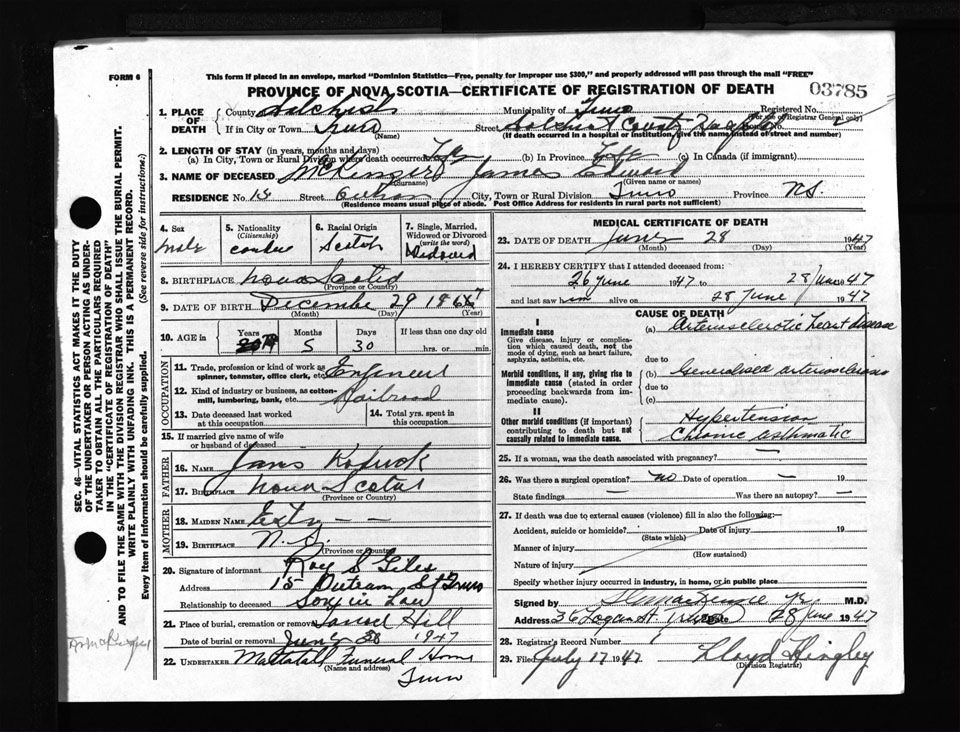 FORM 6
This form if placed in an envelope, marked "Dominion Statistics—Free, penalty for improper use $300," and properly addressed will pass through the mail "FREE"
PROVINCE OF NOVA SCOTIA—CERTIFICATE OF REGISTRATION OF DEATH
03785
1. PLACE OF DEATH
County Municipality of Truro Registered No.
(for use of Registrar General only)
If in City or Town Truro Street County
(Name) (If death occurred in a hospital or institution, give the name instead of street and number)
2. LENGTH OF STAY (in years, months and days)
(a) In City, Town or Rural Division where death occurred Life (b) In Province Life (c) In Canada (if immigrant)
3. NAME OF DECEASED James Edward
(Surname) (Given name or names)
RESIDENCE No. 15 Street City, Town or Rural Division Truro Province N.S.
(Residence means usual place of abode. Post Office Address for residents in rural parts not sufficient)
4. Sex
male
5. Nationality
(Citizenship)
6. Racial Origin
Scotch
7. Single, Married, Widowed or Divorced
(write the word)
Widowed
8. BIRTHPLACE Nova Scotia
(Province or County)
9. DATE OF BIRTH December 29 186
(Month) (Day) (Year)
10. AGE in
Years
Months
5
Days
30
If less than one day old
hrs. or min.
OCCUPATION
11. Trade, profession or kind of work as spinner, teamster, office clerk, etc. Engineer
12. Kind of industry or business, as cotton-mill, lumbering, bank, etc. Railroad
13. Date deceased last worked at this occupation
14. Total yrs. spent in this occupation
15. If married give name of wife or husband of deceased
FATHER
16. NAME
17. BIRTHPLACE Nova Scotia
(Province or County)
MOTHER
18. MAIDEN NAME
19. BIRTHPLACE N.S.
(Province or Country)
20. Signature of informant Roy S Giles
Address 15 Outram St Truro
Relationship to deceased Son in Law
21. Place of burial, cremation or removal Hill
Date of burial or removal 1947
22. UNDERTAKER Mattatall Funeral Home
(Name and address)
Truro
MEDICAL CERTIFICATE OF DEATH
23. DATE OF DEATH June 28 1947
(Month) (Day) (Year)
24. I HEREBY CERTIFY that I attended deceased from:
26 June 1947 to 28 June 1947
and last saw him alive on 28 June 1947
CAUSE OF DEATH
I
Immediate cause
Give disease, injury or complication which caused death, not the mode of dying, such as heart failure, asphyxia, asthenia, etc.
(a) Arteriosclerotic heart disease
due to
Morbid conditions, if any, giving rise to immediate cause (stated in order proceeding backwards from immediate cause).
(b) Generalised arteriosclerosis
due to
(c)
II
Other morbid conditions (if important) contributing to death but not causally related to immediate cause.
Hypertension
Chronic asthmatic
25. If a woman, was the death associated with pregnancy? —
26. Was there a surgical operation? no Date of operation — 19
State findings — Was there an autopsy? —
27. If death was due to external causes (violence) fill in also the following:—
Accident, suicide or homicide? Date of injury 19
(State which)
Manner of injury
(How sustained)
Nature of injury
Specify whether injury occurred in industry, in home, or in public place
Signed by M.D.
Address 36 Logan St Truro Date 28 June 1947
28. Registrar's Record Number
29. Filed July 17 1947 Lloyd Dingley
(Division Registrar)
SEC. 46—VITAL STATISTICS ACT MAKES IT THE DUTY
OF THE UNDERTAKER OR PERSON ACTING AS UNDER-
TAKER TO OBTAIN ALL THE PARTICULARS REQUIRED
IN THE "CERTIFICATE OF REGISTRATION OF DEATH"
AND TO FILE THE SAME WITH THE DIVISION REGISTRAR WHO SHALL ISSUE THE BURIAL PERMIT.
WRITE PLAINLY WITH UNFADING INK. THIS IS A PERMANENT RECORD.
Every item of information should be carefully supplied. (See reverse side for instructions.)